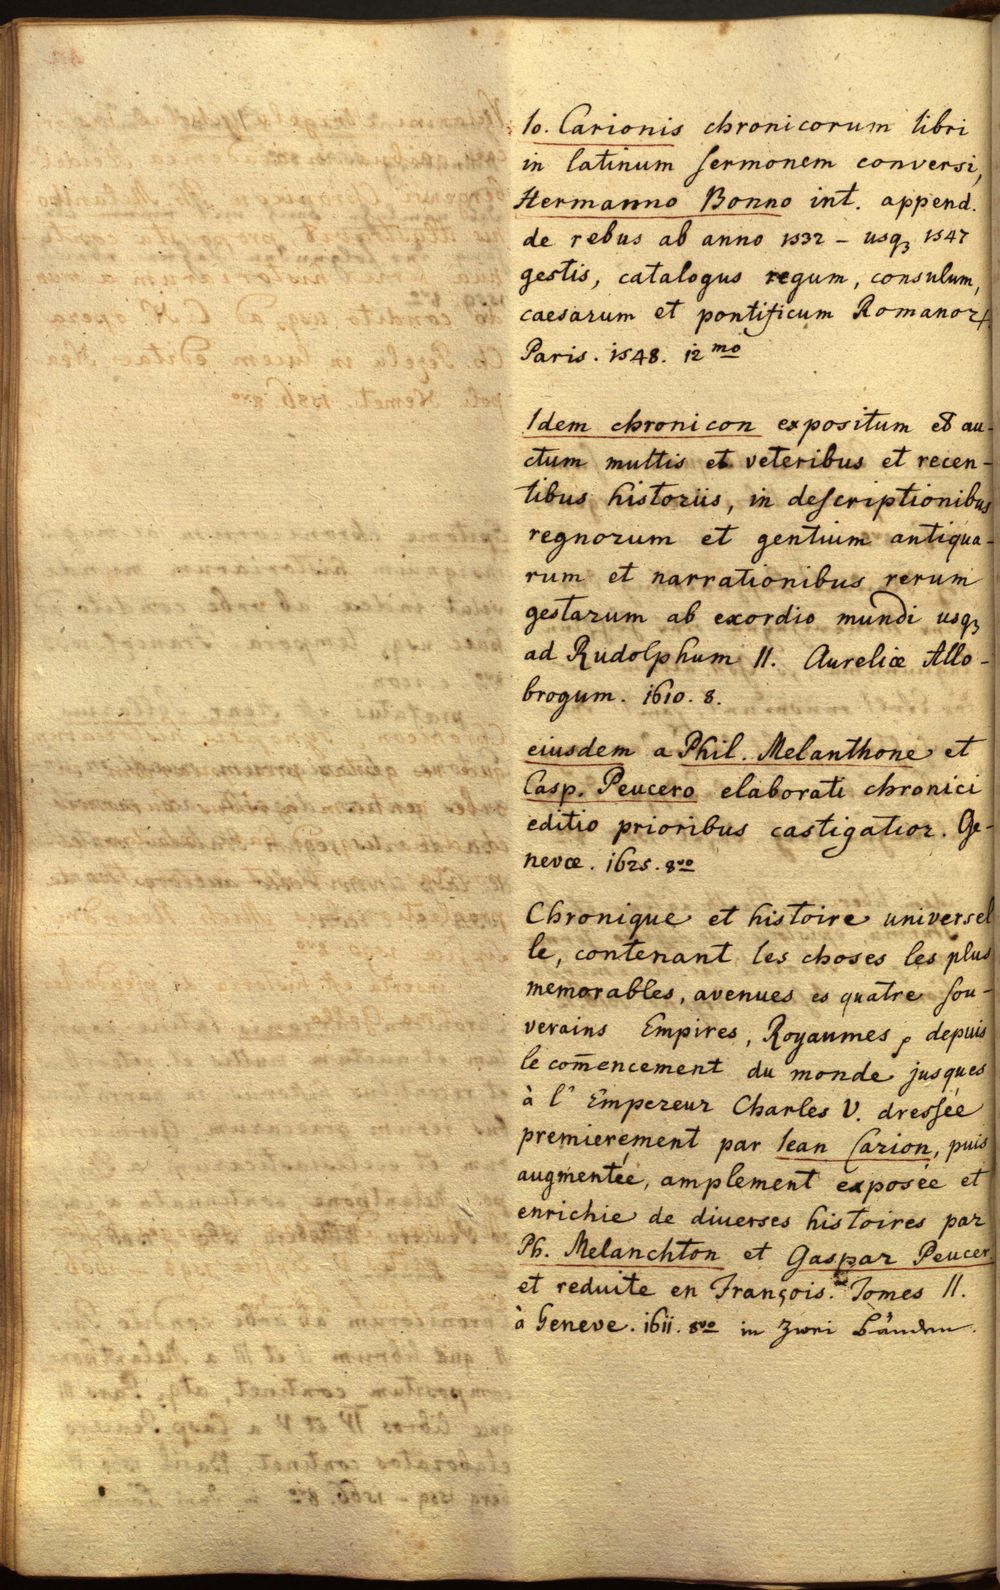 Io. Carionis chronicorum libri
in latinum sermonem conversi,
Hermanno Bonno int. append.
de rebus ab anno 1532 – usqꝫ 1547
gestis, catalogus regum, consulum,
caesarum et pontificum Romanorꝝ
Paris. 1548. 12mo
Idem chronicon expositum et au-
ctum multis et veteribus et recen-
tibus historiis, in descriptionibus
regnorum et gentium antiqua-
rum et narrationibus rerum
gestarum ab exordio mundi usqꝫ
ad Rudolphum II. Aureliæ Allo-
brogum. 1610. 8.
eiusdem a Phil. Melanthone et
Casp. Peucero elaborati chronici
editio prioribus castigatior. Ge-
nevæ. 1625. 8vo
Chronique et histoire universel
le, contenant les choses les plus
memorables, avenues es quatre sou-
verains Empires, Royaumes, depuis
le com̄encement du monde jusques
à l' Empereur Charles V. dressée
premierement par Iean Carion, puis
augmentée, amplement exposée et
enrichie de diverses histoires par
Ph. Melanchton et Gaspar Peucer
et reduite en François. Tomes II.
à Geneve. 1611. 8vo in zwei Bänden.